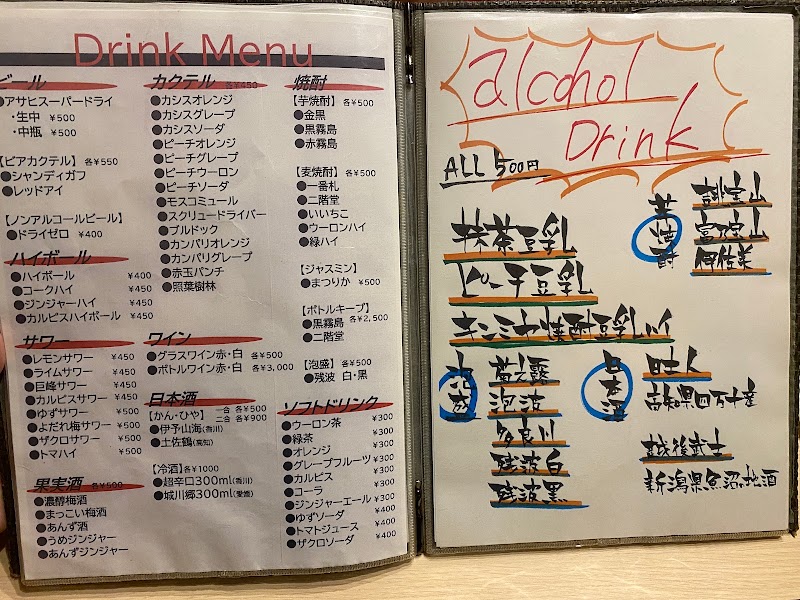 Drink Menu
ビール
●アサヒスーパードライ
・生中 ¥500
・中瓶 ¥500
【ビアカクテル】各¥550
●シャンディガフ
●レッドアイ
【ノンアルコールビール】
●ドライゼロ ¥400
ハイボール
●ハイボール ¥400
●コークハイ ¥450
●ジンジャーハイ ¥450
●カルピスハイボール ¥450
サワー
●レモンサワー ¥450
●ライムサワー ¥450
●巨峰サワー ¥450
●カルピスサワー ¥450
●ゆずサワー ¥500
●よだれ梅サワー ¥500
●ザクロサワー ¥500
●トマハイ ¥500
果実酒 各¥500
●濃醇梅酒
●まっこい梅酒
●あんず酒
●うめジンジャー
●あんずジンジャー
カクテル 各¥450
●カシスオレンジ
●カシスグレープ
●カシスソーダ
●ピーチオレンジ
●ピーチグレープ
●ピーチウーロン
●ピーチソーダ
●モスコミュール
●スクリュードライバー
●ブルドック
●カンパリオレンジ
●カンパリグレープ
●赤玉パンチ
●照葉樹林
ワイン
●グラスワイン赤・白 各¥500
●ボトルワイン赤・白 各¥3,000
日本酒
【かん・ひや】 一合 各¥500
二合 各¥900
●伊予山海(香川)
●土佐鶴(高知)
【冷酒】各¥1000
●超辛口300ml(香川)
●城川郷300ml(愛媛)
焼酎
【芋焼酎】各¥500
●金黒
●黒霧島
●赤霧島
【麦焼酎】各¥500
●一番札
●二階堂
●いいちこ
●ウーロンハイ
●緑ハイ
【ジャスミン】
●まつりか ¥500
【ボトルキープ】
●黒霧島 各¥2,500
●二階堂
【泡盛】各¥500
●残波 白・黒
ソフトドリンク
●ウーロン茶 ¥300
●緑茶 ¥300
●オレンジ ¥300
●グレープフルーツ ¥300
●カルピス ¥300
●コーラ ¥300
●ジンジャーエール ¥300
●ゆずソーダ ¥400
●トマトジュース ¥400
●ザクロソーダ ¥400
alcohol
Drink
ALL 500円
抹茶豆乳
ピーチ豆乳
キンミヤ焼酎豆乳ハイ
芋焼酎
富乃宝山
伊佐美
泡盛
菊之露
泡波
多良川
残波白
残波黒
日本酒
高知県四万十産
越後武士
新潟県魚沼地酒